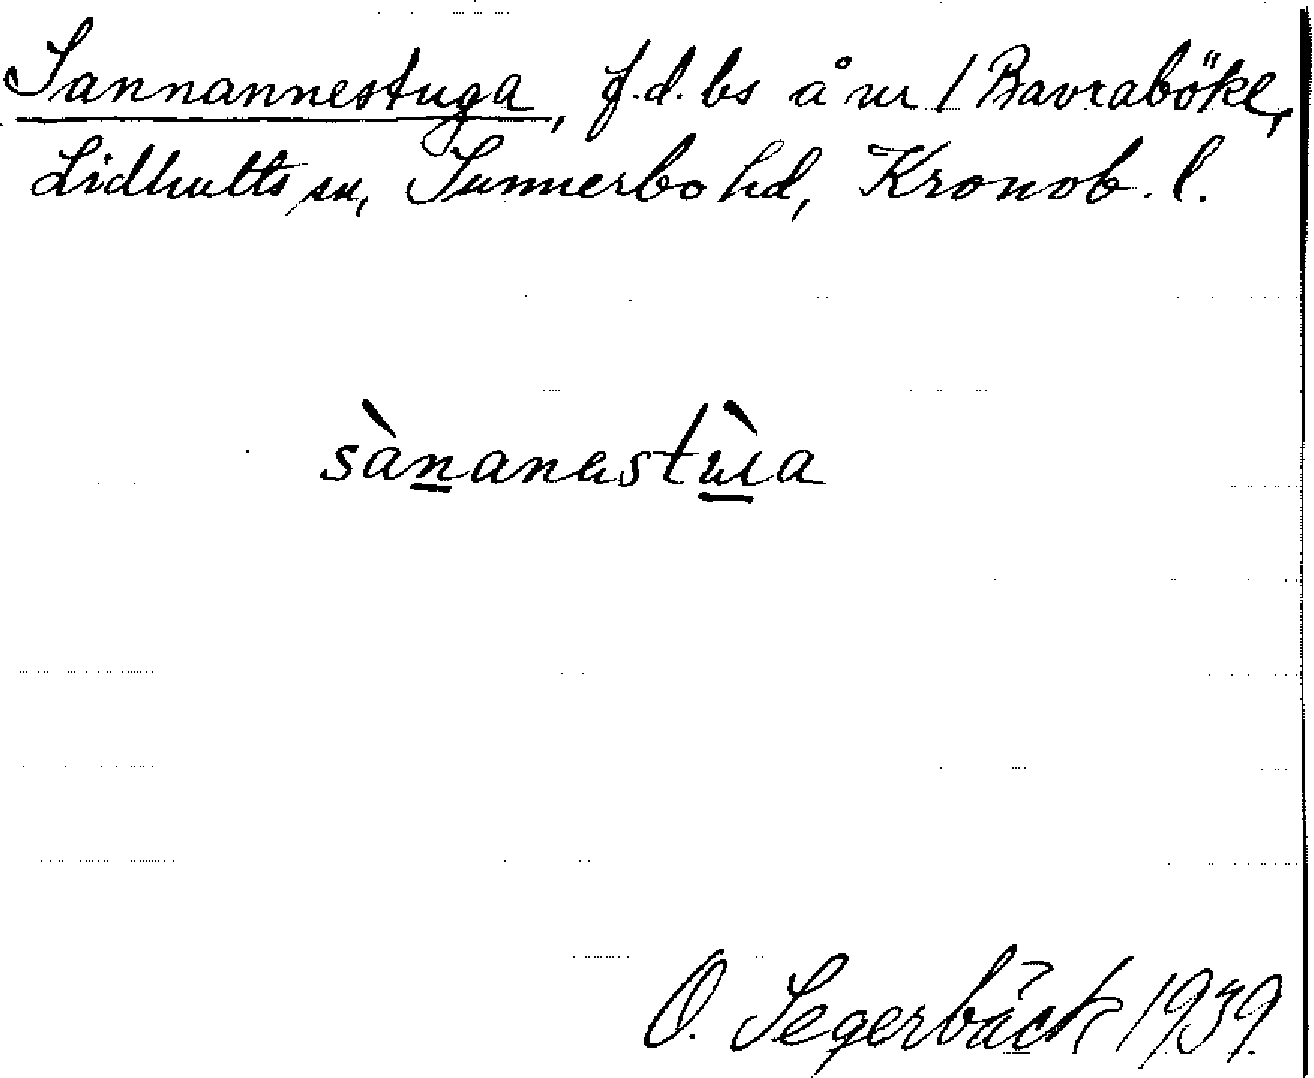 Sannannestuga, f.d. bs å nr 1 Bavraböke,
Lidhults sn, Sunnerbo hd, Kronob. l.
sànanastùa
O. Segerbäck 1939.